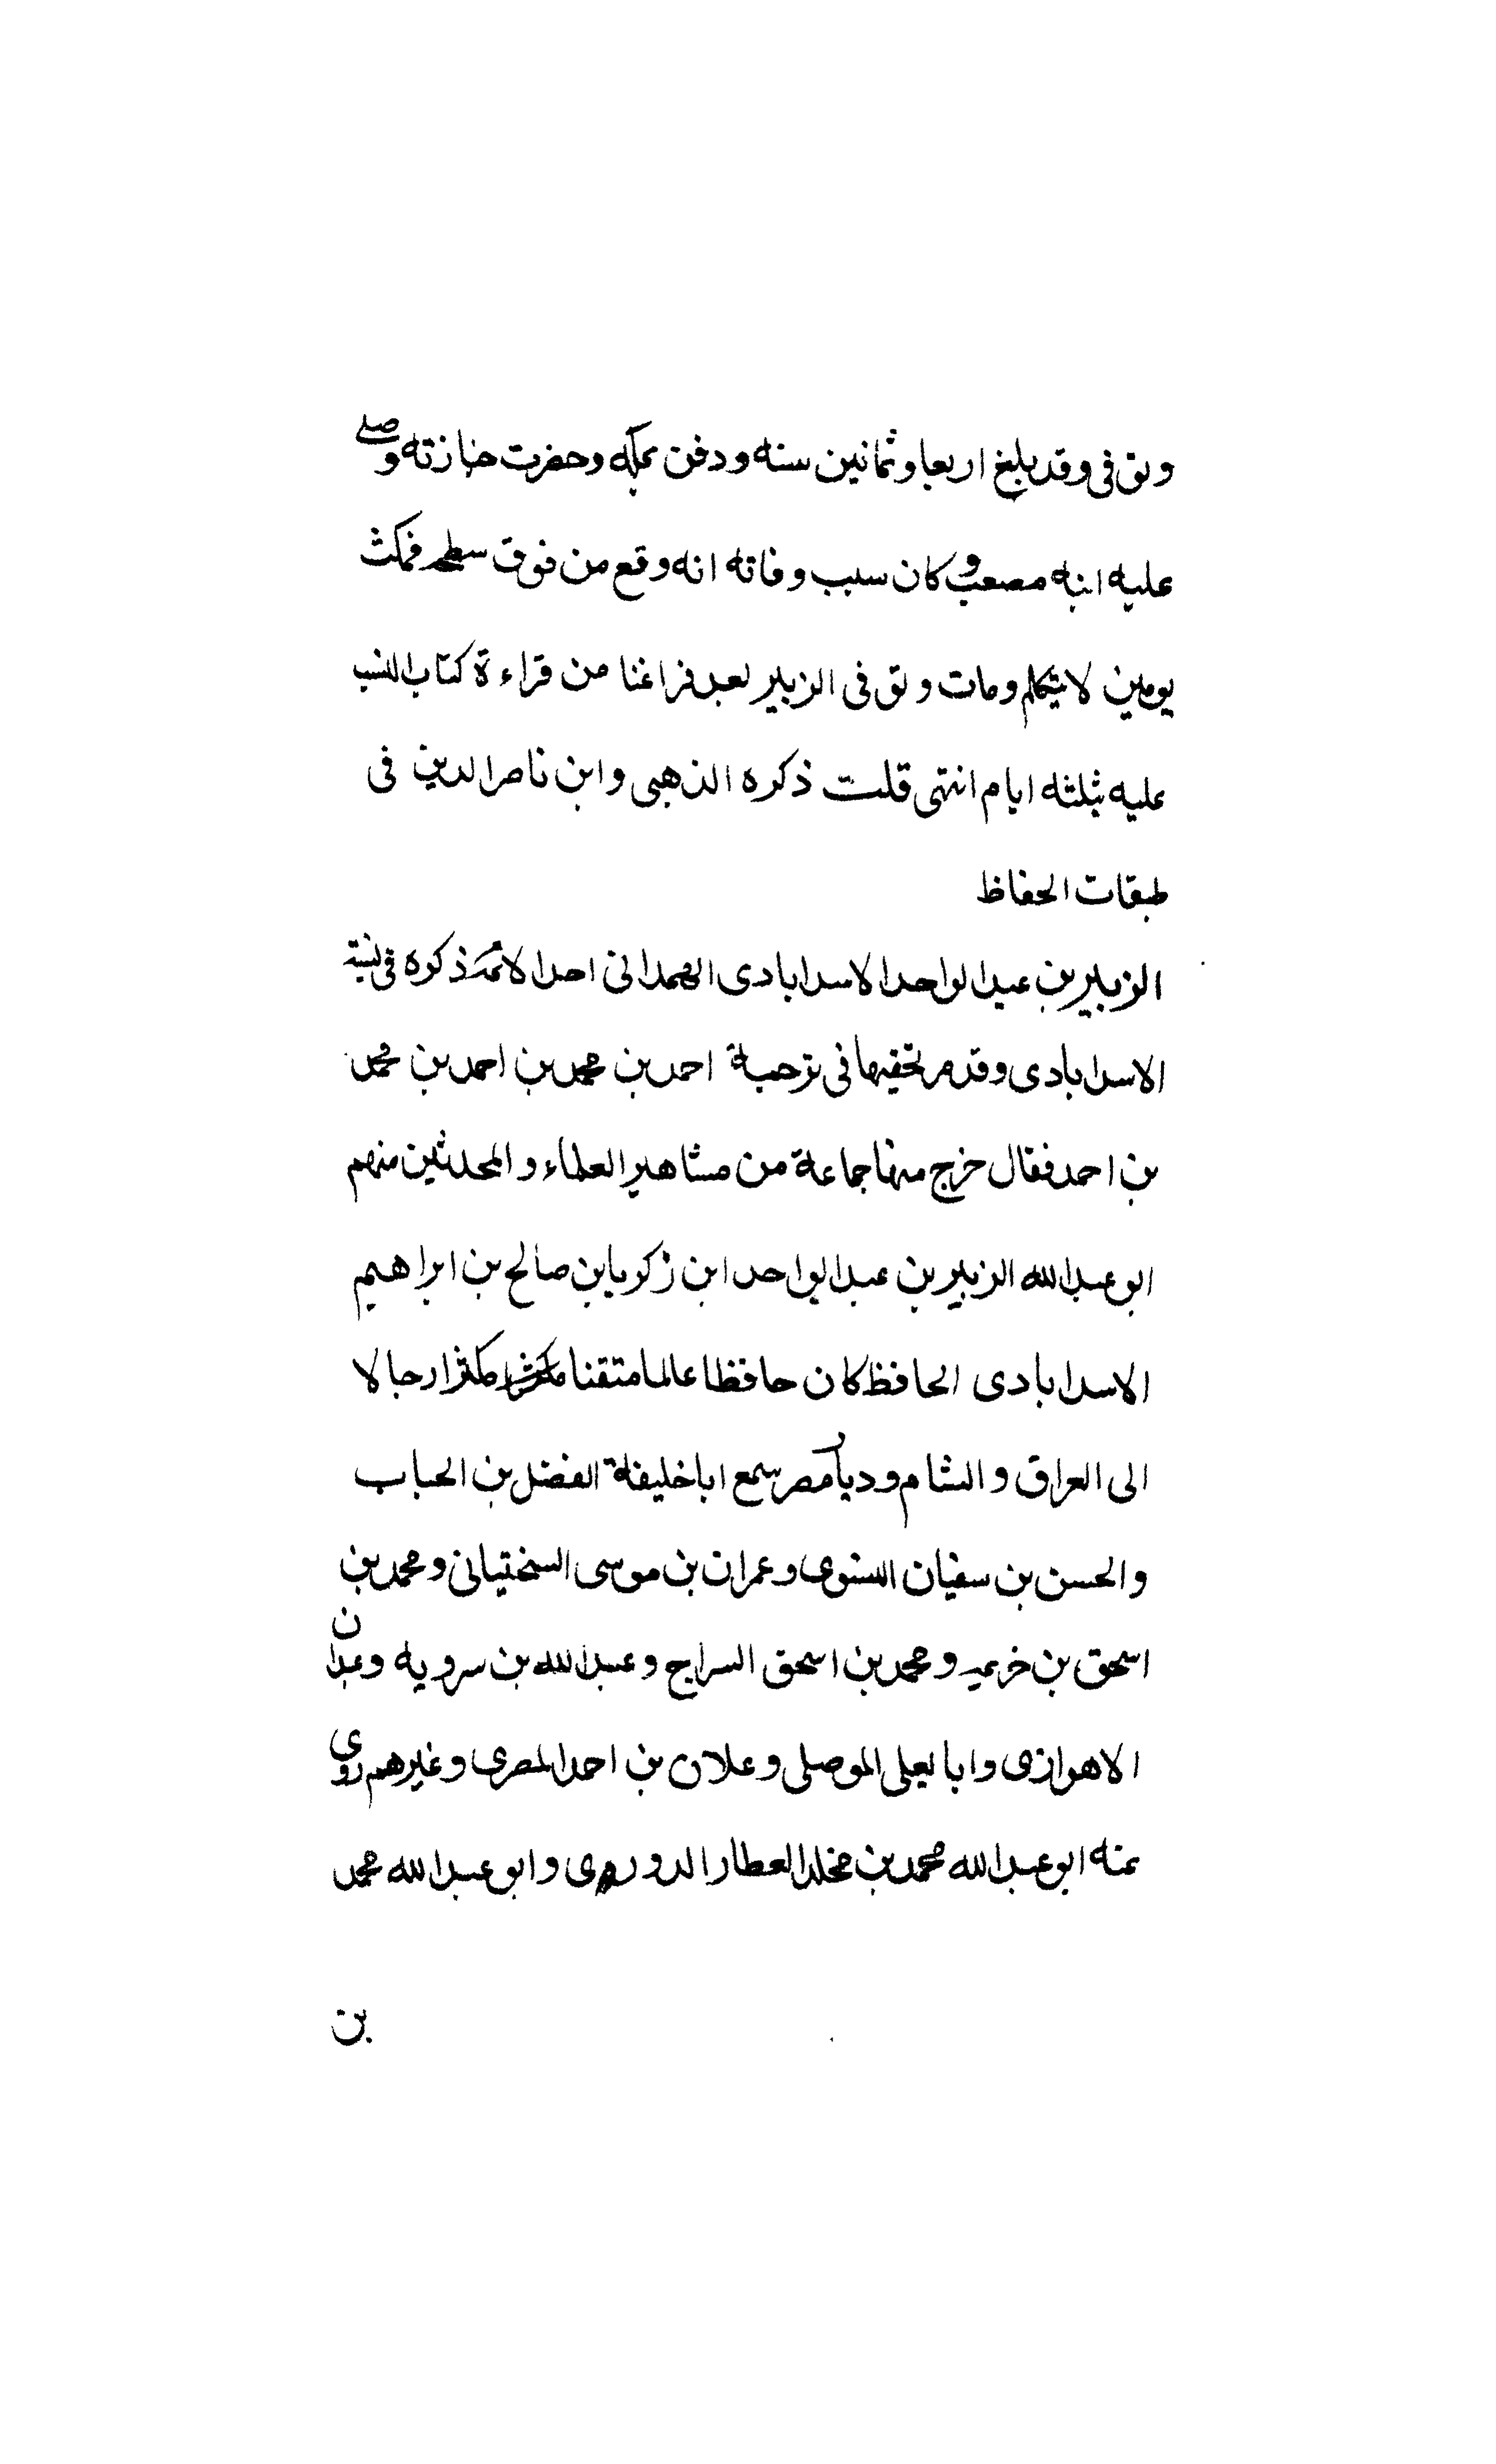 وتوفى وقد بلغ اربعا وثمانين سنه ودفن بمكه وحضرت جنازته وصلى
عليه ابنه مصعب وكان سبب وفاته انه وقع من فوق سطحه فمكث
يومين لا يتكلم ومات وتوفى الزبير بعد فراغنا من قراءة كتاب النسب
عليه بثلثه ايام انتهى قلت ذكره الذهبى وابن ناصر الدين فى
طبقات الحفاظ
الزبير بن عبد الواحد الاسدابادى الهمدانى احد الائمة ذكره فى نسبة
الاسدابادى وقد مر تحقيقها فى ترجمة احمد بن محمد بن احمد بن محمد
بن احمد فقال خرج منها جماعة من مشاهير العلماء والمحدثين منهم
ابو عبد الله الزبير بن عبد الواحد ابن زكريا بن صالح بن ابراهيم
الاسدابادى الحافظ كان حافظا عالما متقنا مكثرا رحالا
الى العراق والشام وديار مصر سمع ابا خليفة الفضل بن الحباب
والحسن بن سفيان النسوى وعمران بن موسى السختيانى ومحمد بن
اسحق بن خزيمه ومحمد بن اسحق السراج وعبد الله بن سرويه وعبدان
الاهوازى وابا يعلى الموصلى وعلان بن احمد المصرى وغيرهم روى
عنه ابو عبد الله محمد بن مخلد العطار الدورى وابو عبد الله محمد
بن